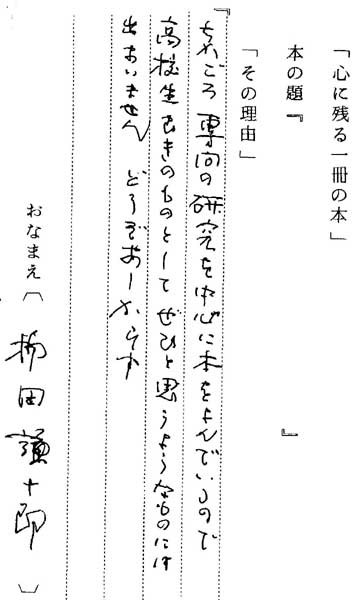 「心に残る一冊の本」
本の題『　　　』
「その理由」
ちかごろ専向の研究を中心に本をよんでいるので
高校生むきのものとして ぜひと思うようなものには
出あいません どうぞあしからず
おなまえ（柳田謙十郎）